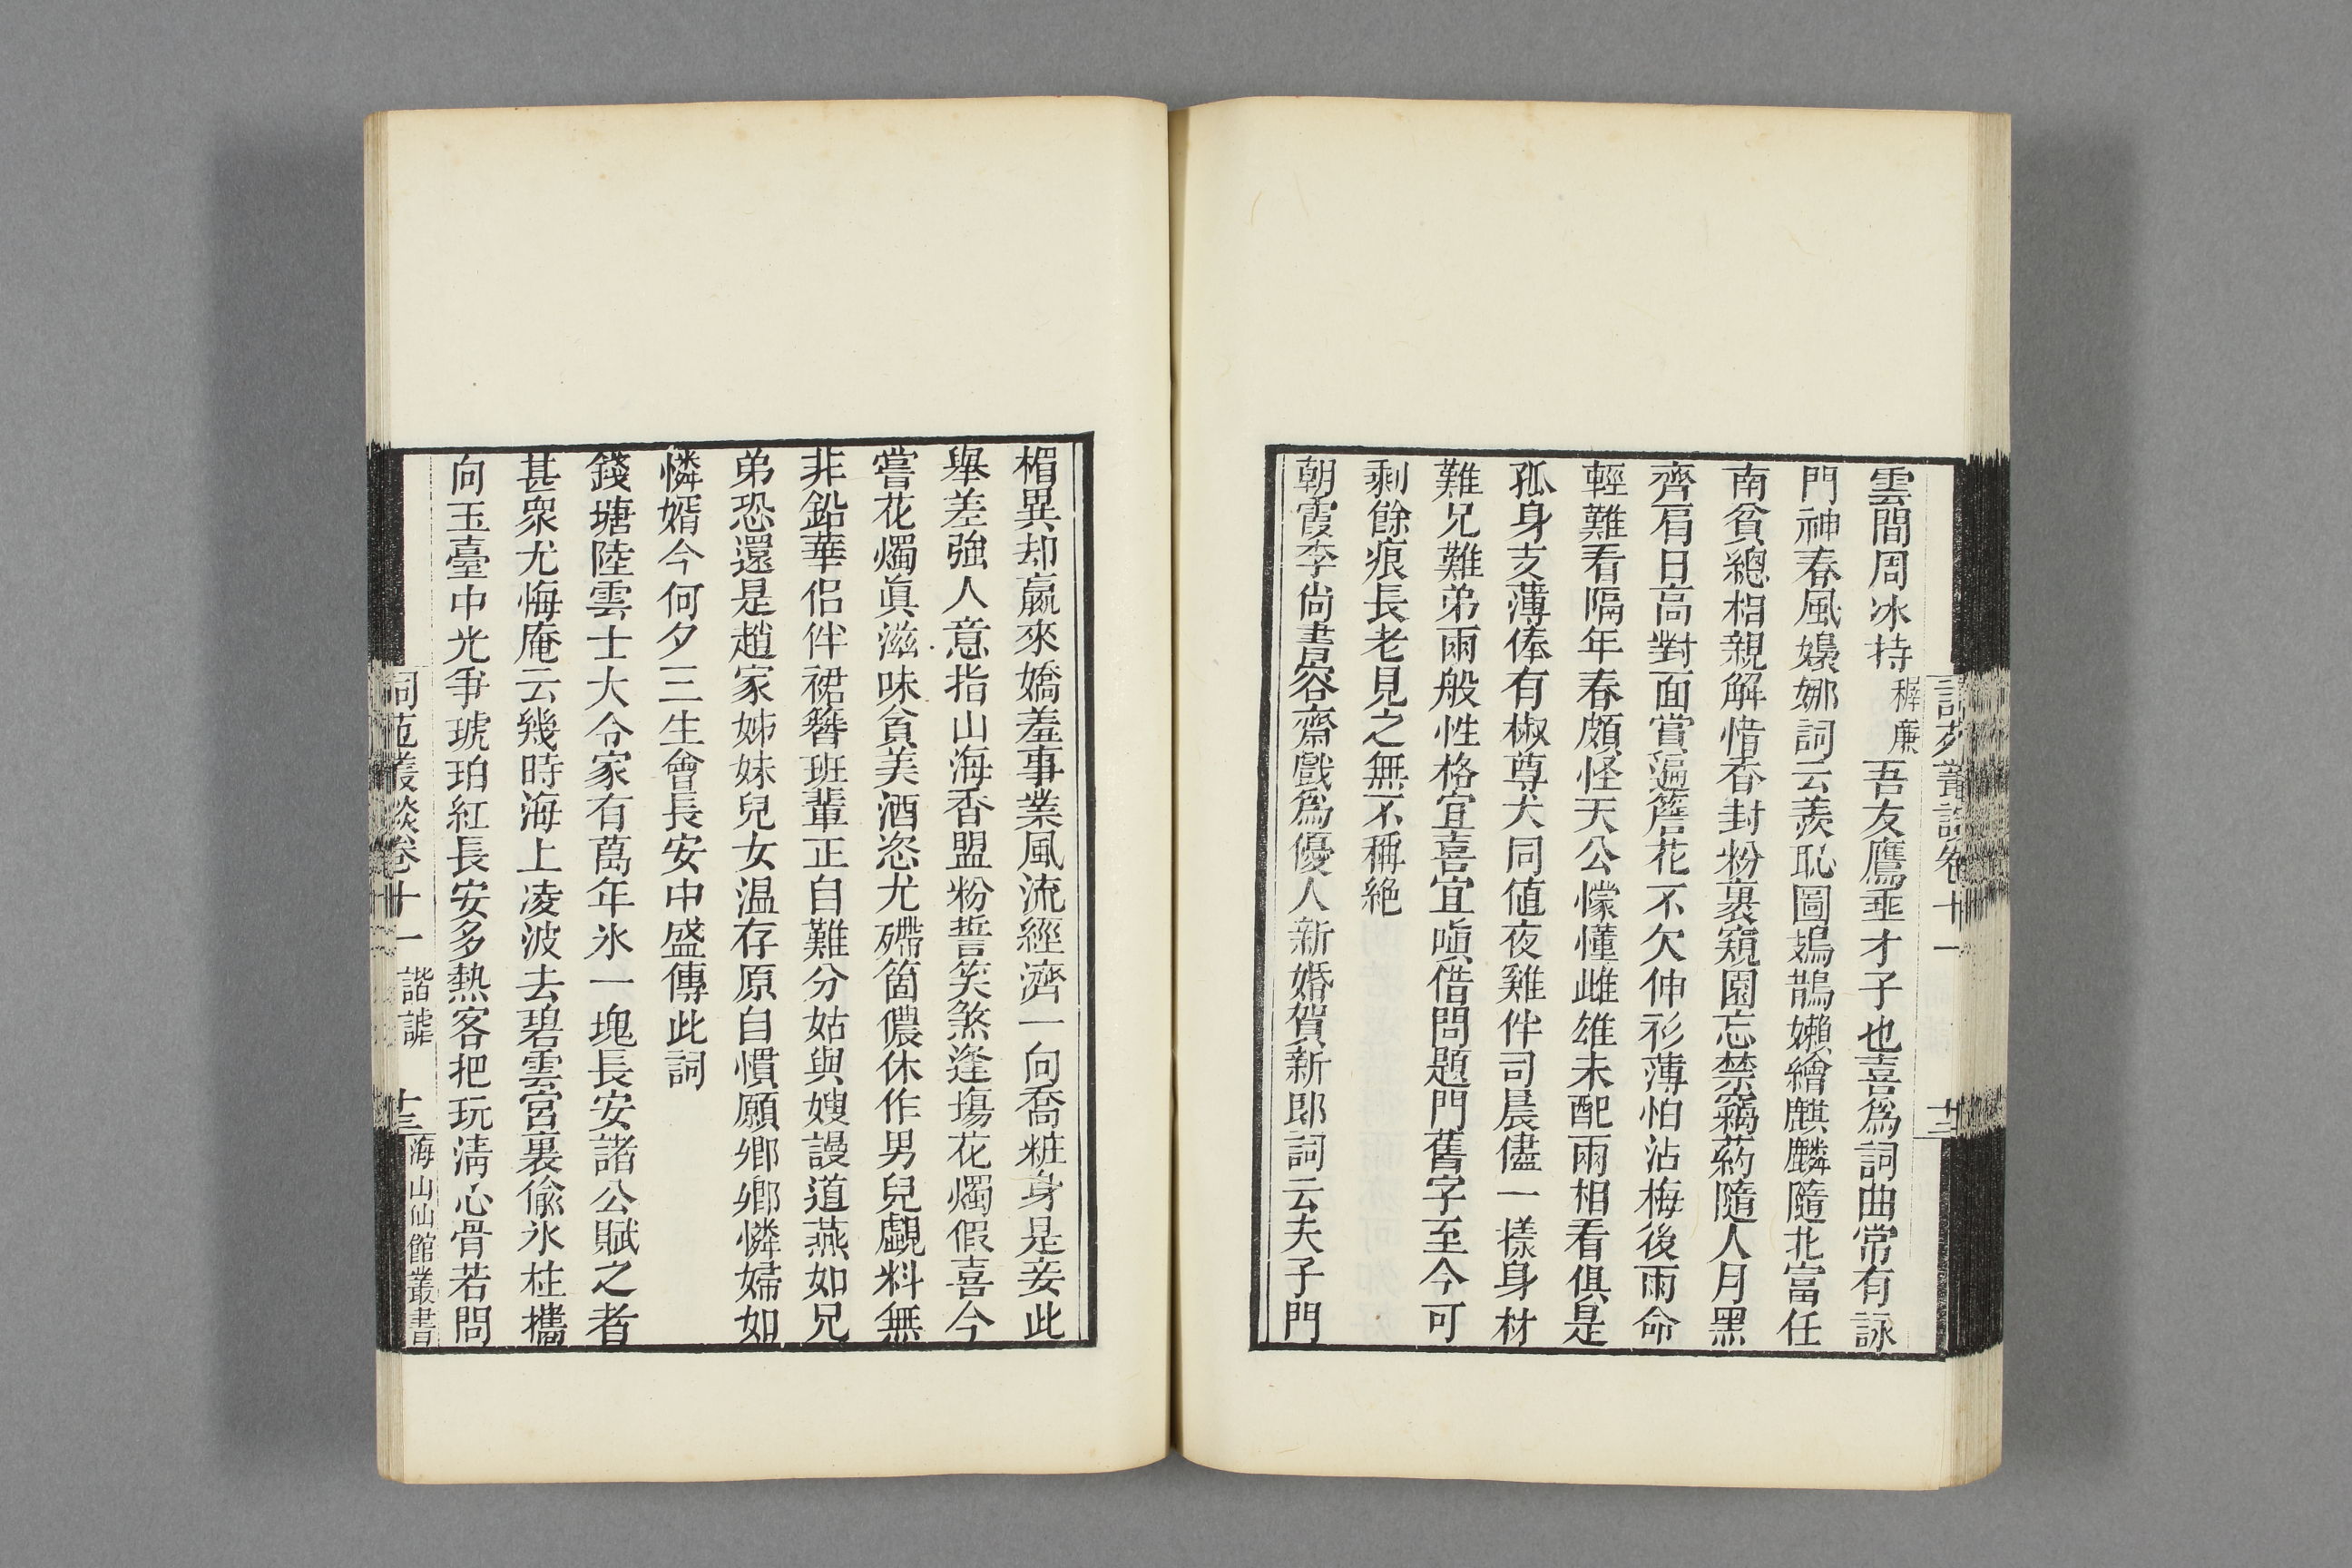 雲間周冰持穉廉吾友鷹垂才子也喜爲詞曲常有詠
門神春風嬝娜詞云羨恥圖鳷鵲嬾繪麒麟隨北富任
南貧總相親解惜香封粉裏窺園忘禁竊葯隨人月黑
齊肩日高對面賞遍簷花不欠伸衫薄怕沾梅後雨命
輕難看隔年春頗怪天公懞懂雌雄未配兩相看俱是
孤身支薄俸有椒尊犬同値夜雞伴司晨儘一樣身材
難兄難弟兩般性格宜喜宜嗔借問題門舊字至今可
剩餘痕長老見之無不稱絶
朝霞李尚書容齋戲爲優人新婚賀新郞詞云夫子門
楣異却嬴來嬌羞事業風流經濟一向喬粧身是妾此
舉差強人意指山海香盟粉誓笑煞逢塲花燭假喜今
嘗花燭眞滋味貪美酒恣尤殢箇儂休作男兒覷料無
非鉛華侶伴裙簪班輩正自難分姑與嫂謾道燕如兄
弟恐還是趙家姊妹兒女温存原自慣願卿卿憐婦如
憐婿今何夕三生會長安中盛傳此詞
錢塘陸雲士大令家有萬年氷一塊長安諸公賦之者
甚衆尤悔庵云幾時海上凌波去碧雲宮裏偸氷柱攜
向玉臺中光爭琥珀紅長安多熱客把玩淸心骨若問
詞苑叢談卷十一 諧謔 十三 海山仙館叢書